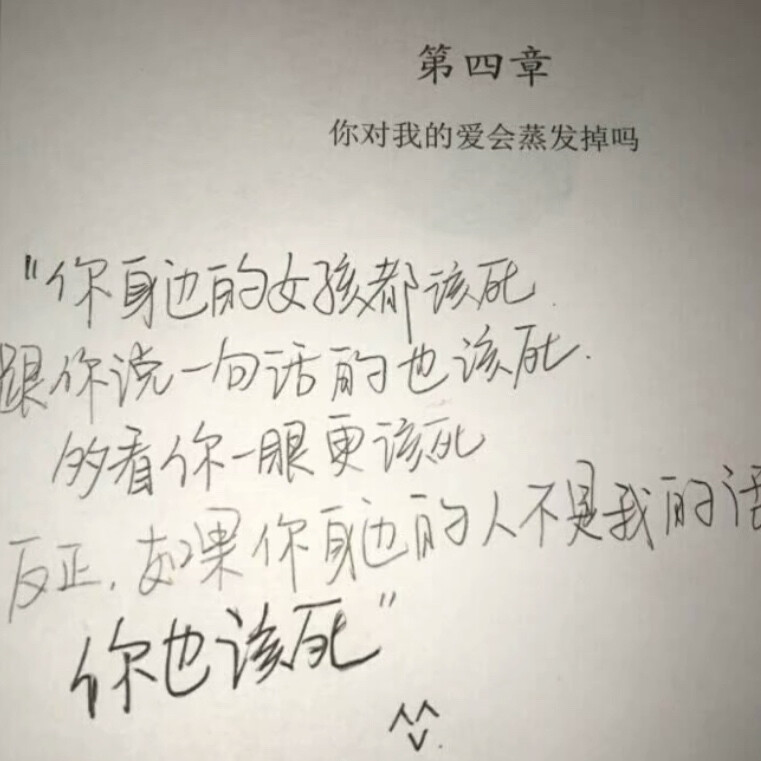 第四章
你对我的爱会蒸发掉吗
"你身边的女孩都该死.
跟你说一句话的也该死.
多看你一眼更该死
反正,如果你身边的人不是我的话
你也该死"